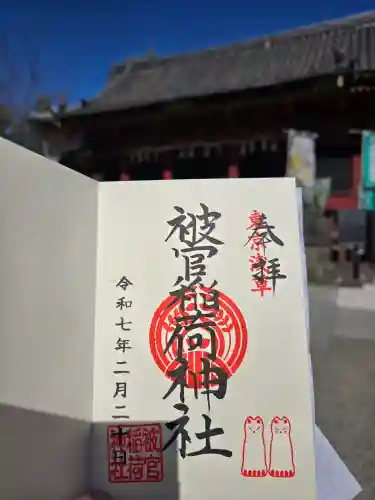 奉拝
東京浅草
被官稲荷神社
令和七年二月二十日
被官
稲荷
神社